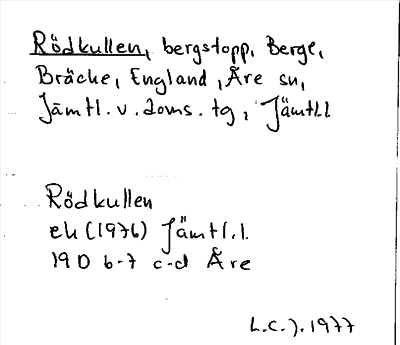 Rödkullen, bergstopp, Berge,
Bräcke, England, Åre sn,
Jämtl. v. doms. tg, Jämtl.l
Rödkullen
ek (1976) Jämtl.l.
19 D 6-7 c-d Åre
L.C.J. 1977